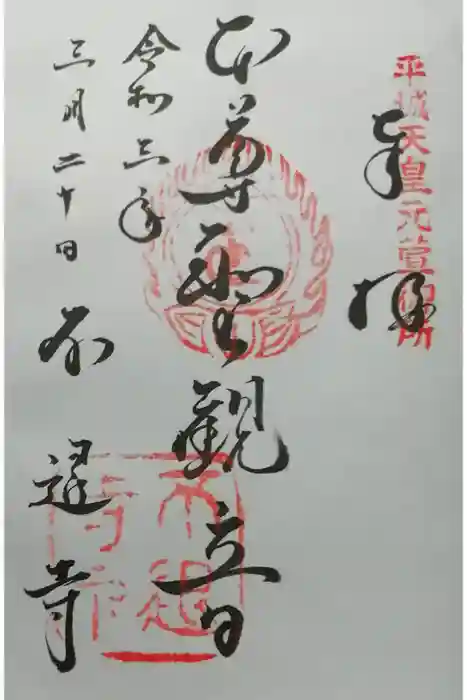 平城天皇元萱御所
奉拝
本尊聖観音
令和三年
三月二十日
不退寺
不退寺印